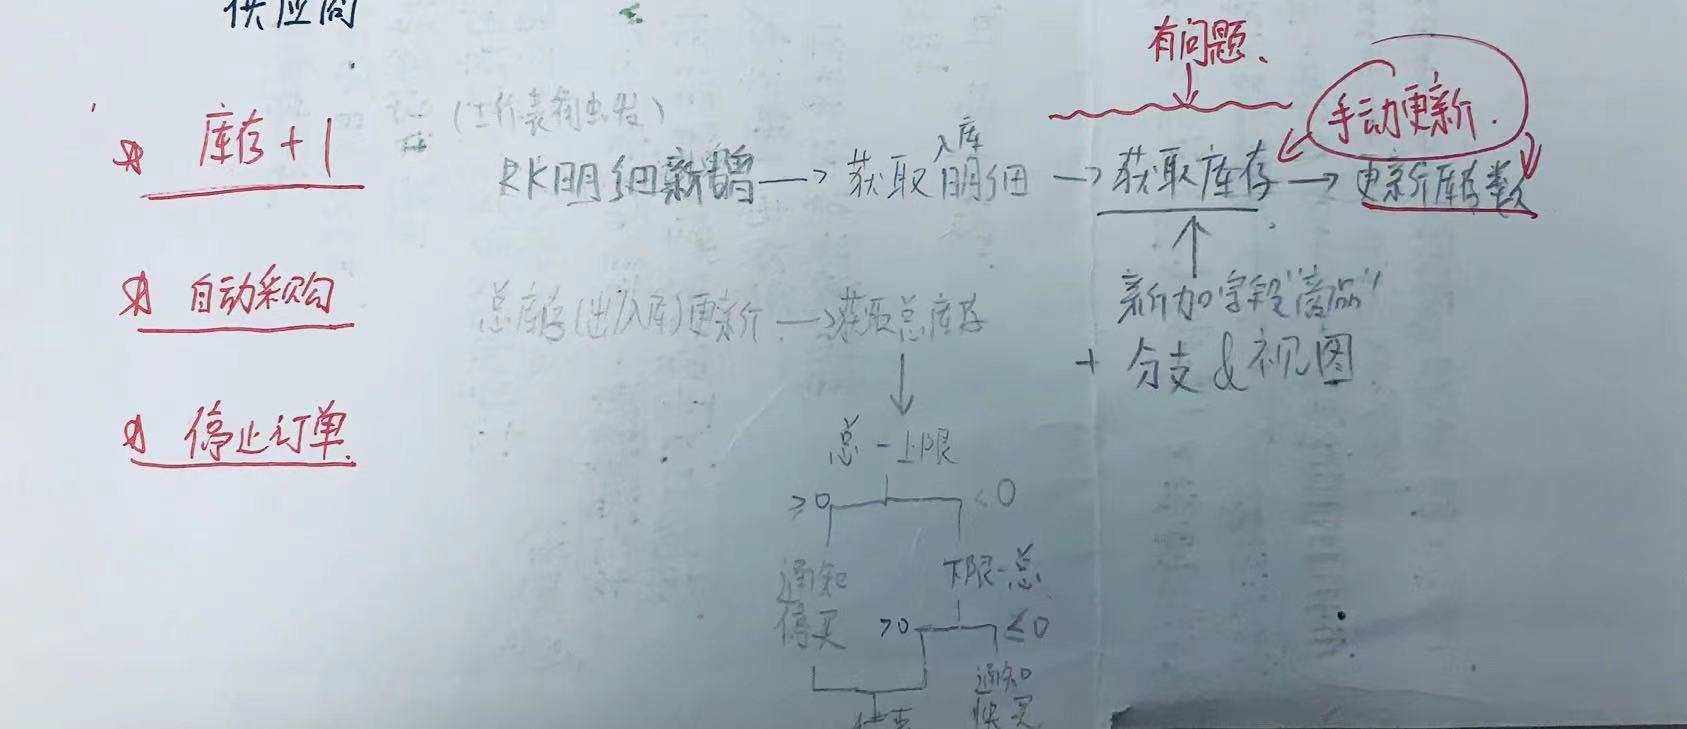 供应商
有问题、
手动更新.
库存+1
(工作表触发)
RK明细新增→获取入库明细→获取库存→更新库存数
自动采购
总库存(出/入库)更新→获取总库存
新加字段"商品"
+ 分支&视图
停止订单
总-上限
≥0 <0
通知停买
下限-总
>0 ≤0
通知